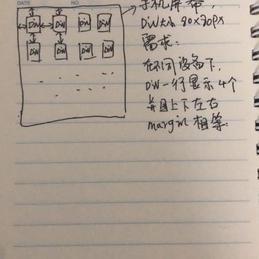 DATE NO.
手机屏幕,
Div Div Div Div
Div大小 90x90px
Div Div Div Div
需求:
在不同设备下,
Div一行显示4个
并且上下左右
margin相等.